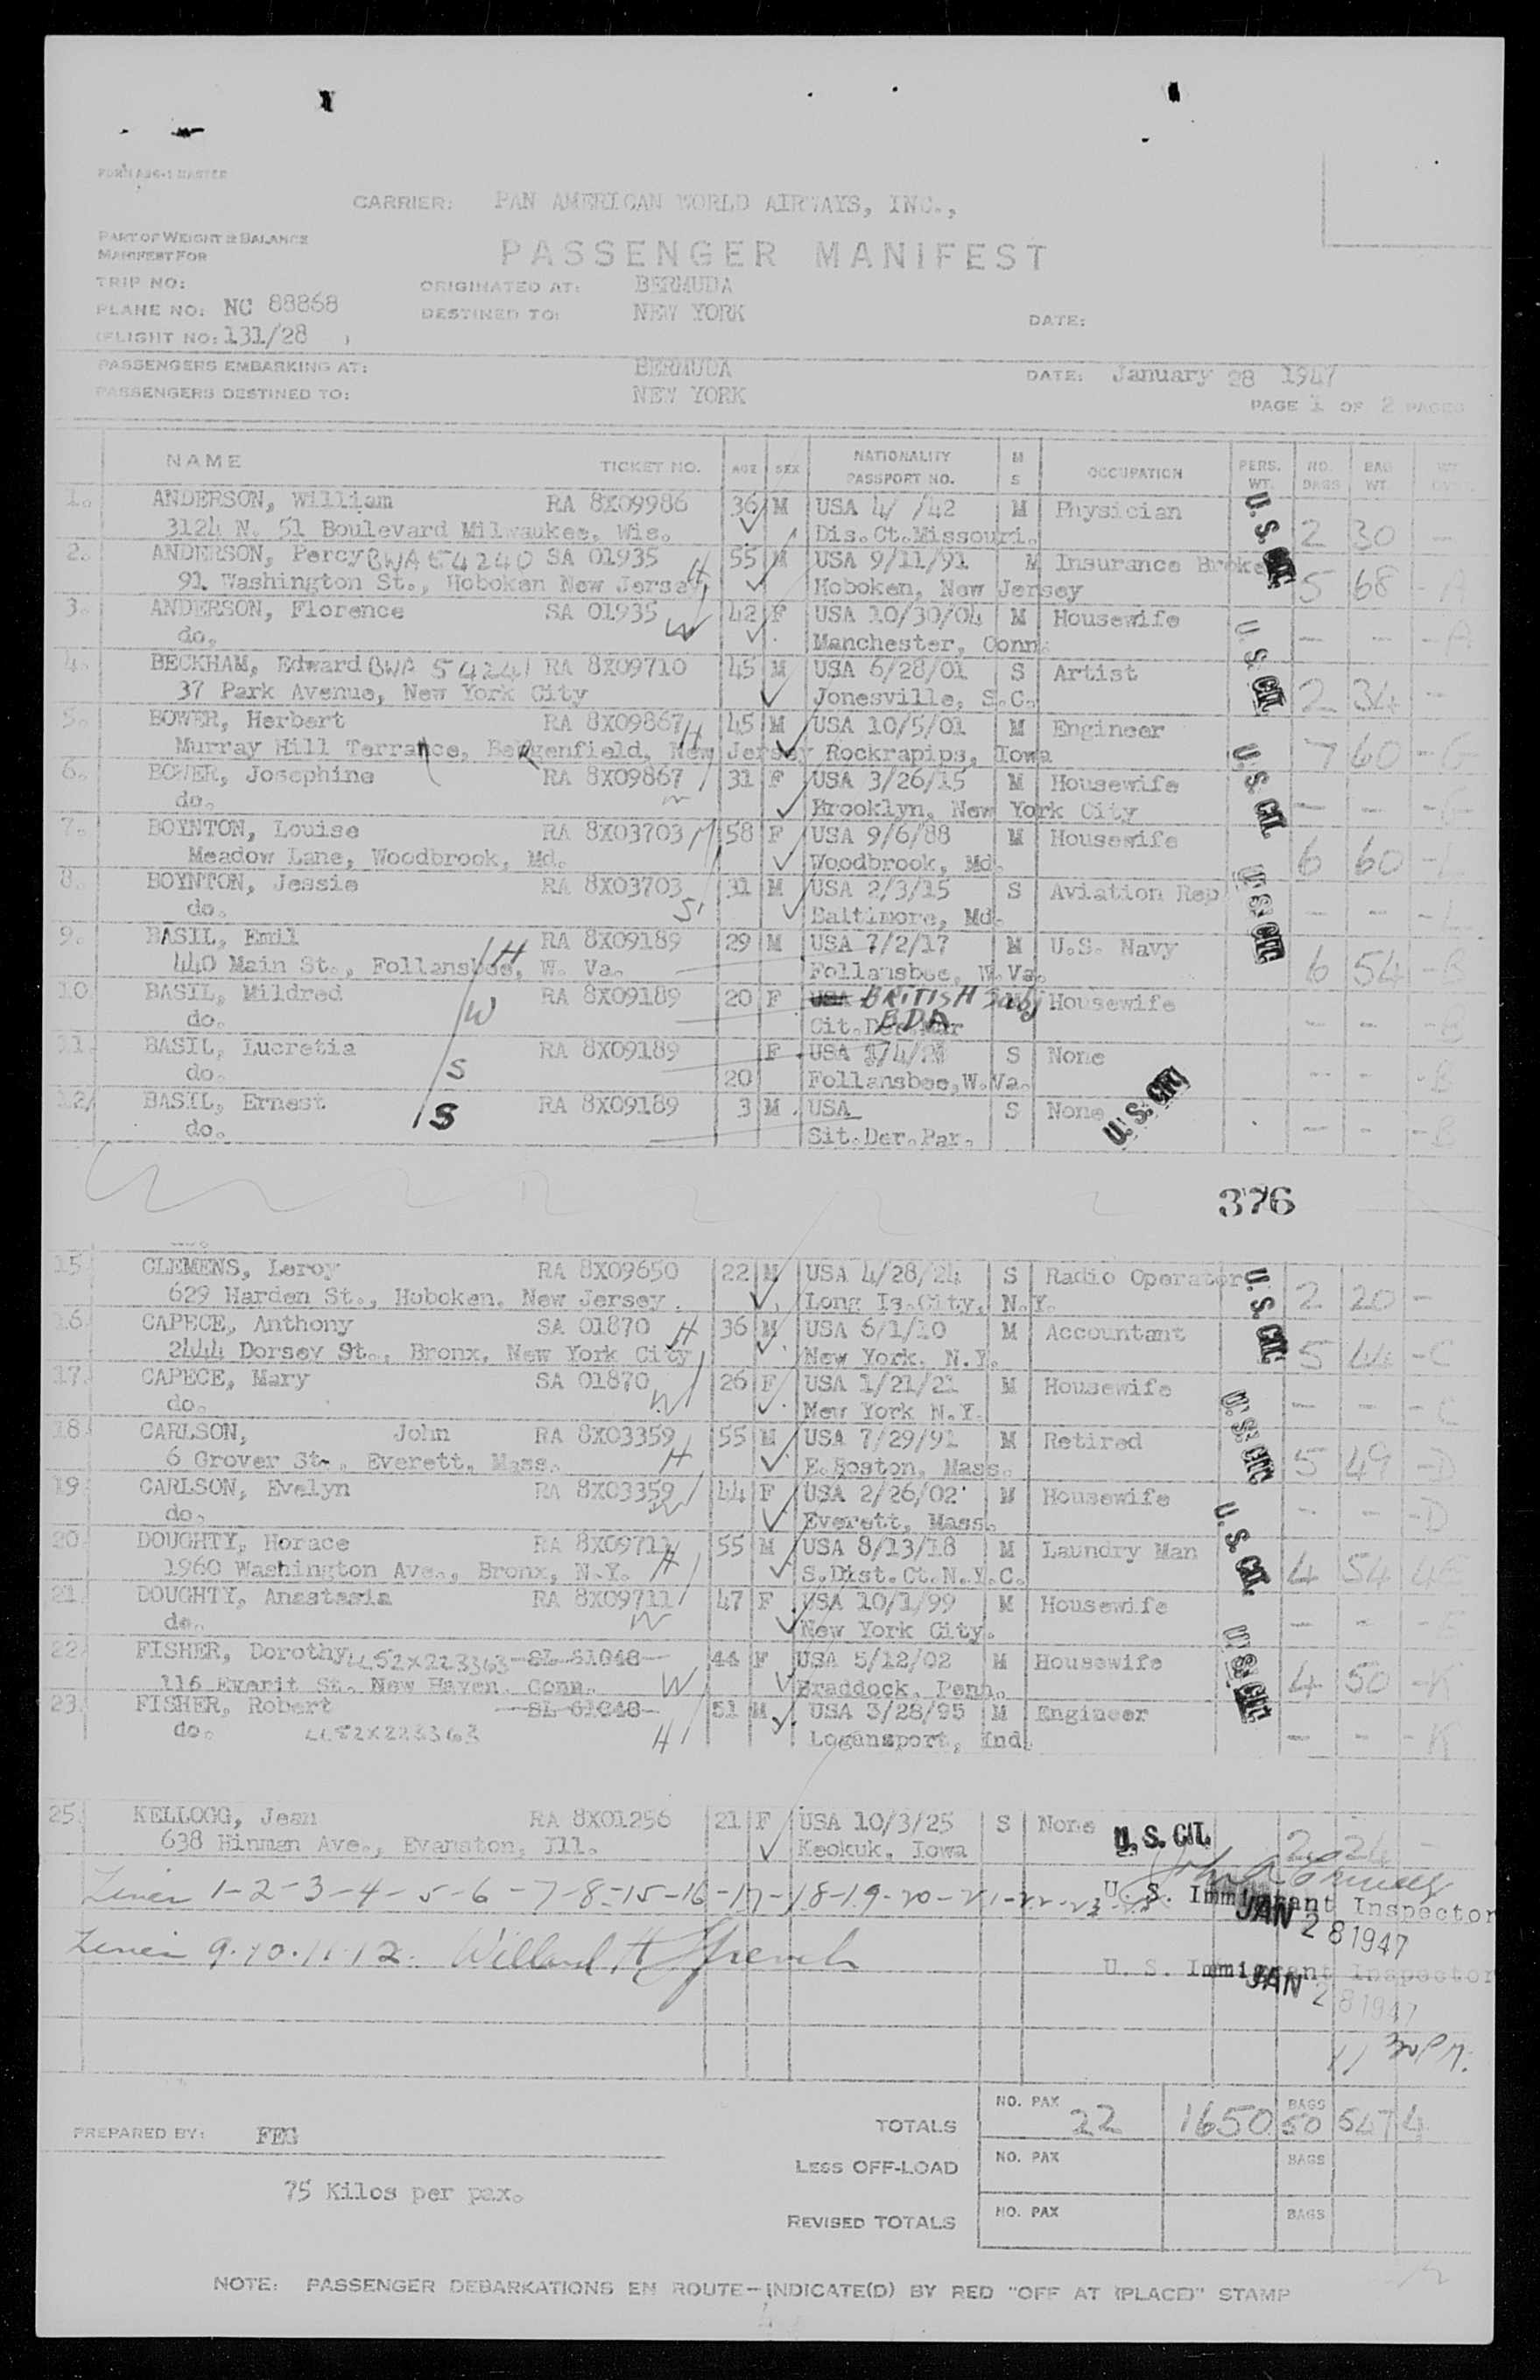 FORM A86-1 MASTER
CARRIER: PAN AMERICAN WORLD AIRWAYS, INC.,
PART OF WEIGHT & BALANCE
MANIFEST FOR
PASSENGER MANIFEST
TRIP NO: ORIGINATED AT: BERMUDA
PLANE NO: NC 88868 DESTINED TO: NEW YORK DATE:
(FLIGHT NO: 131/28 )
PASSENGERS EMBARKING AT: BERMUDA DATE: January 28 1947
PASSENGERS DESTINED TO: NEW YORK
PAGE 1 OF 2 PAGES
NAME TICKET NO. AGE SEX NATIONALITY PASSPORT NO. M S OCCUPATION PERS. WT. NO. BAGS BAG WT.
1. ANDERSON, William RA 8X09986 36 M USA 4/ /42 M Physician U. S. CIT.
3124 N. 51 Boulevard Milwaukee, Wis. Dis.Ct.Missouri. 2 30 -
2. ANDERSON, Percy BWA 54240 SA 01935 H 55 M USA 9/11/91 M Insurance Broke
91 Washington St., Hoboken New Jersey Hoboken, New Jersey 5 68 - A
3. ANDERSON, Florence SA 01935 W 42 F USA 10/30/04 M Housewife U. S. CIT.
do. Manchester, Conn. - - - A
4. BECKHAM, Edward BWA 54241 RA 8X09710 45 M USA 6/28/01 S Artist
37 Park Avenue, New York City Jonesville, S.C. 2 34 -
5. BOWER, Herbert RA 8X09867 H 45 M USA 10/5/01 M Engineer U. S. CIT.
Murray Hill Terrance, Bergenfield, New Jersey Rockrapips, Iowa 7 60 - G
6. BOWER, Josephine RA 8X09867 W 31 F USA 3/26/15 M Housewife
do. Brooklyn, New York City - - - G
7. BOYNTON, Louise RA 8X03703 M 58 F USA 9/6/88 M Housewife
Meadow Lane, Woodbrook, Md. Woodbrook, Md. 6 60 - L
8. BOYNTON, Jessie RA 8X03703 S 31 M USA 2/3/15 S Aviation Rep U. S. CIT.
do. Baltimore, Md. - - - L
9. BASIL, Emil H RA 8X09189 29 M USA 7/2/17 M U.S. Navy
440 Main St., Follansbee, W. Va. Follansbee, W.Va. 6 54 - B
10. BASIL, Mildred W RA 8X09189 20 F USA BRITISH Subj Housewife
do. Cit.Der.Mar BDA - - - B
11. BASIL, Lucretia S RA 8X09189 F USA S None
do. 20 Follansbee, W.Va. - - - B
12. BASIL, Ernest S RA 8X09189 3 M USA S None U. S. CIT.
do. Sit.Der.Par. - - - B
376
15. CLEMENS, Leroy RA 8X09650 22 M USA 4/28/24 S Radio Operator U. S. CIT.
629 Harden St., Hoboken, New Jersey. Long Is.City, N.Y. 2 20 -
16. CAPECE, Anthony SA 01870 H 36 M USA 6/1/10 M Accountant
2444 Dorsey St., Bronx, New York City New York, N.Y. 5 44 - C
17. CAPECE, Mary SA 01870 W 26 F USA 1/21/21 M Housewife U. S. CIT.
do. New York N.Y. - - - C
18. CARLSON, John RA 8X03359 55 M USA 7/29/91 M Retired
6 Grover St., Everett, Mass. H E.Boston, Mass. 5 49 - D
19. CARLSON, Evelyn RA 8X03359 W 44 F USA 2/26/02 M Housewife U. S. CIT.
do. Everett, Mass. - - - D
20. DOUGHTY, Horace RA 8X09711 H 55 M USA 8/13/18 M Laundry Man
1960 Washington Ave., Bronx, N.Y. S.Dist.Ct.N.Y.C. 4 54 4E
21. DOUGHTY, Anastasia RA 8X09711 W 47 F USA 10/1/99 M Housewife
do. New York City. - - - E
22. FISHER, Dorothy LL52X223363 SL 61048 44 F USA 5/12/02 M Housewife U. S. CIT.
116 Everit St. New Haven, Conn. W Braddock, Penn. 4 50 - K
23. FISHER, Robert SL 61048 51 M USA 3/28/95 M Engineer
do. LL52X223363 H Logansport, Ind. - - - K
25. KELLOGG, Jean RA 8X01256 21 F USA 10/3/25 S None U. S. CIT.
638 Hinman Ave., Evanston, Ill. Keokuk, Iowa 2 24 -
Lines 1-2-3-4-5-6-7-8-15-16-17-18-19-20-21-22-23 U. S. Immigrant Inspector
JAN 28 1947
Lines 9.10.11.12. Willard H French U. S. Immigrant Inspector
JAN 28 1947
11 30 P.M.
TOTALS NO. PAX 22 1650 BAGS 50 547 4
PREPARED BY: FEG
LESS OFF-LOAD NO. PAX BAGS
75 Kilos per pax.
REVISED TOTALS NO. PAX BAGS
NOTE: PASSENGER DEBARKATIONS EN ROUTE-INDICATE(D) BY RED "OFF AT (PLACE)" STAMP